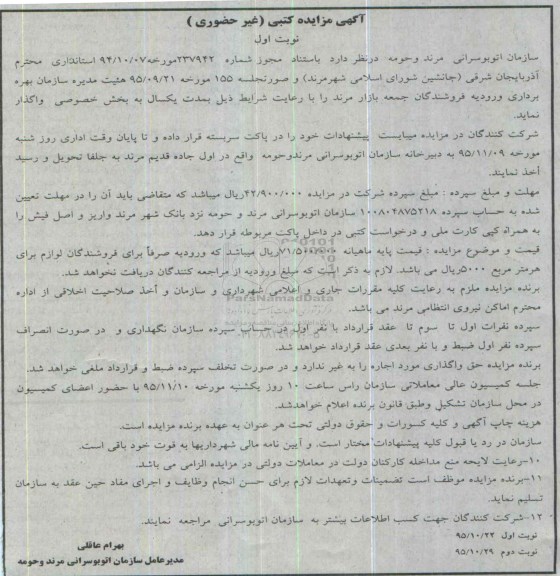 آگهی مزایده کتبی (غیر حضوری )
نوبت اول
سازمان اتوبوسرانی مرند وحومه درنظر دارد باستناد مجوز شماره ۲۳۷۹۴۲مورخه۹۴/۱۰/۰۷ استانداری محترم
آذربایجان شرقی (جانشین شورای اسلامی شهرمرند) و صورتجلسه ۱۵۵ مورخه ۹۵/۰۹/۲۱ هئیت مدیره سازمان بهره
برداری ورودیه فروشندگان جمعه بازار مرند را با رعایت شرایط ذیل بمدت یکسال به بخش خصوصی واگذار
نماید.
شرکت کنندگان در مزایده میبایست پیشنهادات خود را در پاکت سربسته قرار داده و تا پایان وقت اداری روز شنبه
مورخه ۹۵/۱۱/۰۹ به دبیرخانه سازمان اتوبوسرانی مرندوحومه واقع در اول جاده قدیم مرند به جلفا تحویل و رسید
أخذ نمایند.
مهلت و مبلغ سپرده : مبلغ سپرده شرکت در مزایده ۴۲/۹۰۰/۰۰۰ریال میباشد که متقاضی باید آن را در مهلت تعیین
شده به حساب سپرده ۱۰۰۸۰۴۸۷۵۲۱۸ سازمان اتوبوسرانی مرند و حومه نزد بانک شهر مرند واریز و اصل فیش را
به همراه کپی کارت ملی و درخواست کتبی در داخل پاکت مربوطه قرار دهد.
قیمت و موضوع مزایده : قیمت پایه ماهیانه ۷۱/۵۰۰/۰۰۰ریال میباشد که ورودیه صرفاً برای فروشندگان لوازم برای
هرمتر مربع ۵۰۰۰ریال می باشد. لازم به ذکر است که مبلغ ورودیه از مراجعه کنندگان دریافت نخواهد شد.
برنده مزایده ملزم به رعایت کلیه مقررات جاری و اعلامی شهرداری و سازمان و أخذ صلاحیت اخلاقی از اداره
محترم اماکن نیروی انتظامی مرند می باشد.
سپرده نفرات اول تا سوم تا عقد قرارداد با نفر اول در حساب سپرده سازمان نگهداری و در صورت انصراف
سپرده نفر اول ضبط و با نفر بعدی عقد قرارداد خواهد شد.
برنده مزایده حق واگذاری مورد اجاره را به غیر ندارد و در صورت تخلف سپرده ضبط و قرارداد ملغی خواهد شد.
جلسه کمیسیون عالی معاملاتی سازمان راس ساعت ۱۰ روز یکشنبه مورخه ۹۵/۱۱/۱۰ با حضور اعضای کمیسیون
در محل سازمان تشکیل وطبق قانون برنده اعلام خواهدشد.
هزینه چاپ آگهی و کلیه کسورات و حقوق دولتی تحت هر عنوان به عهده برنده مزایده است.
سازمان در رد یا قبول کلیه پیشنهادات مختار است. و آیین نامه مالی شهرداریها به قوت خود باقی است.
۱۰-رعایت لایحه منع مداخله کارکنان دولت در معاملات دولتی در مزایده الزامی می باشد.
۱۱-برنده مزایده موظف است تضمینات وتعهدات لازم برای حسن انجام وظایف و اجرای مفاد حین عقد به سازمان
تسلیم نماید.
۱۲-شرکت کنندگان جهت کسب اطلاعات بیشتر به سازمان اتوبوسرانی مراجعه نمایند.
نوبت اول ۹۵/۱۰/۲۲
نوبت دوم ۹۵/۱۰/۲۹
بهرام عاقلی
مدیرعامل سازمان اتوبوسرانی مرند وحومه
ParsNamadData